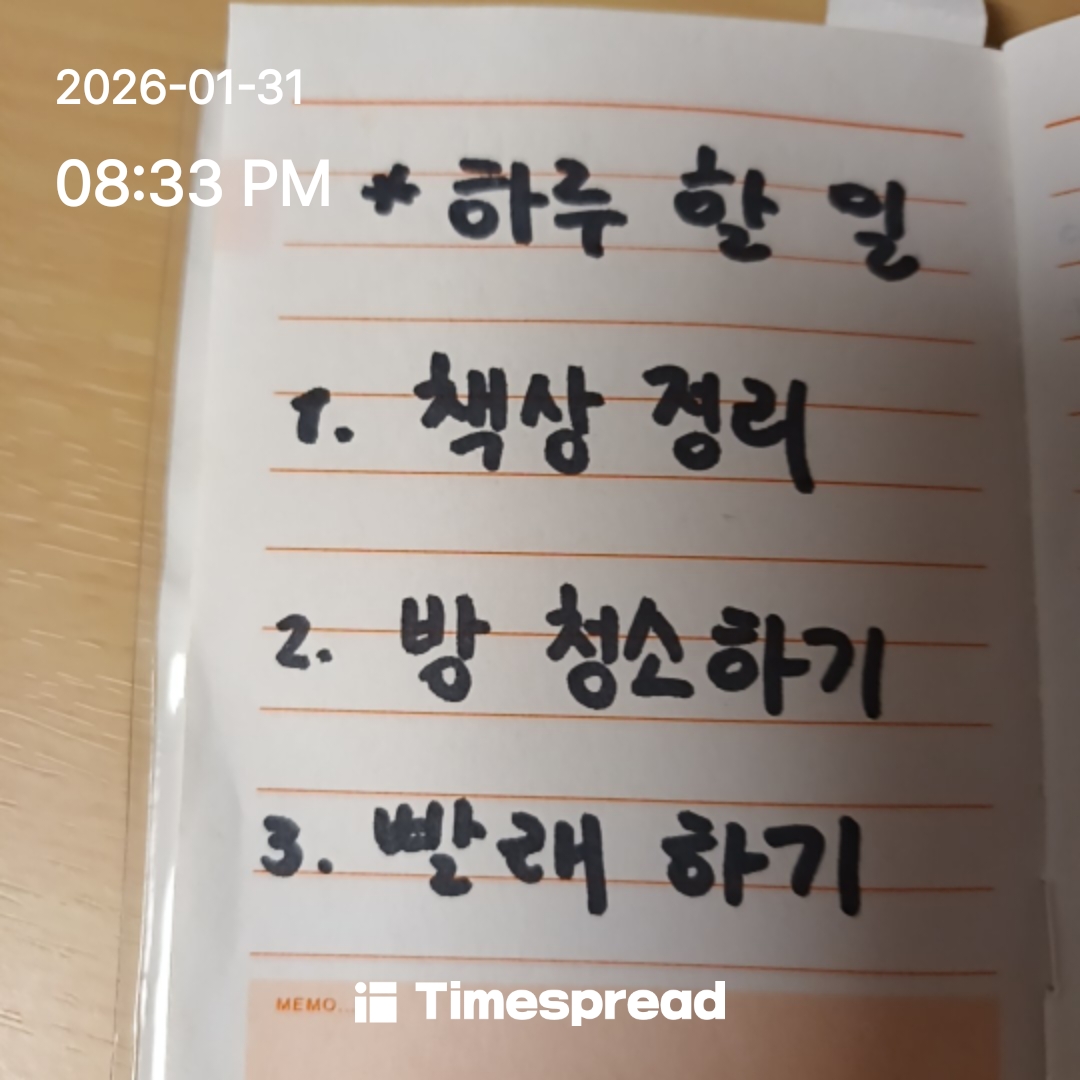 2026-01-31
08:33 PM
* 하루 할 일
1. 책상 정리
2. 방 청소하기
3. 빨래 하기
MEMO...
Timespread